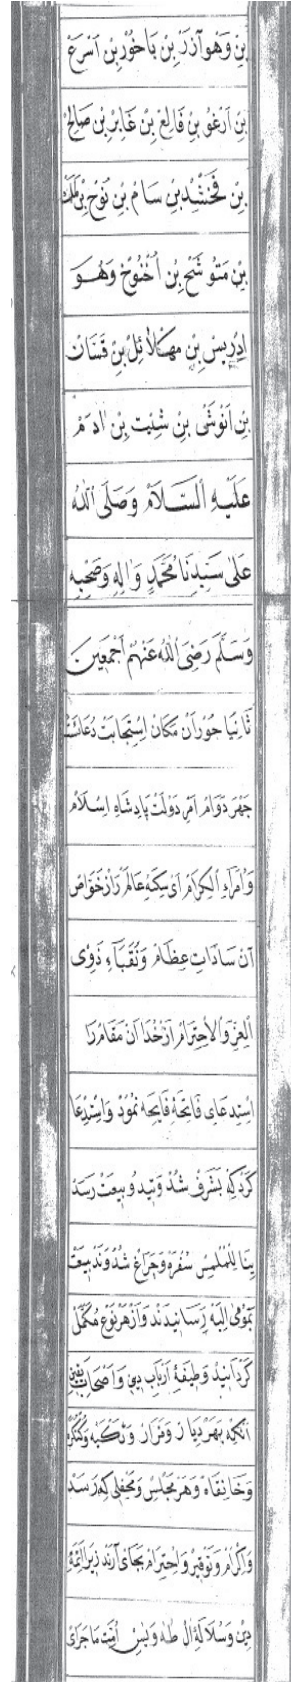 بِنْ وَهُوَ آزَرْ بِنْ بَاخُورْ بِنْ اَسْرَعْ
بِنْ اَرْغُو بِنْ فَالِغْ بِنْ عَابِرْ بِنْ صَالِحْ
بِنْ فَخْشَدْ بِنْ سَامْ بِنْ نُوحْ بِنْ لَمَكْ
بِنْ مَتُوشَلَحْ بِنْ اُخْنُوخْ وَهُوَ
اِدْرِيسْ بِنْ مَهْلَائِلْ بِنْ قَيْنَانْ
بِنْ اَنُوشَىْ بِنْ شِيْتْ بِنْ اٰدَمْ
عَلَيْهِ اَلسَّلَامْ وَصَلَّى اللهُ
عَلَى سَيِّدِنَا مُحَمَّدٍ وَاٰلِهِ وَصَحْبِهِ
وَسَلَّمْ رَضِيَ اللهُ عَنْهُمْ اَجْمَعِينْ
ثَانِيًا چُوْن آنْ مَكَانْ اِسْتِجَابَتْ دُعَاسْتْ
جَهْرَ دَوَامْ اَمْرِ دَوْلَتْ پَادِشَاهِ اِسْلَامْ
وَاُمَرَاءِ اَلْكِرَامْ اَىْ عَالَمْ رَا زْ خَوَاصْ
آنْ سَادَاتِ عِظَامْ وَنُقَبَآءِ ذَوِى
اَلْعِزِّ وَالْاِحْتِرَامْ اَزْ خُدَا آنْ مَقَامْ رَا
اِسْتِدْعَاىِ فَاتِحَهْ فَايِحَه نَمُودْ وَاسْتِدْعَا
كَرْد كِهْ بَشَرَفْ شُدْ وَبَيْعَتْ رَسَدْ
سُفْرَه وَچَرَاغْ شُدْ وَنَدْ بَيْعَتْ
اِلَيْهْ رَسَانِيدَنْدْ وَاَزْ هَرْ نَوْعْ مُكَمَّلْ
كَرْدَانِيدْ وَظِيفَهٔ اَرْبَابِ دِينْ وَاَصْحَابِ يَقِينْ
آنْكِه بَهَرْ دِيَارْ وَمَزَارْ وَتَكْيَهْ
وَخَانِقَاهْ وَهَرْ مَجْلِسْ وَمَحْفِلِى كِه رَسَدْ
وَاِكْرَامْ وَتَوْقِيرْ وَاِحْتِرَامْ بَجَاىْ آرَنْد زِيرَا ائِمَّهٔ
دِينْ وَسُلَالَهٔ اٰلِ طٰهٰ وَيٰسْ مَاجَرَاىْ